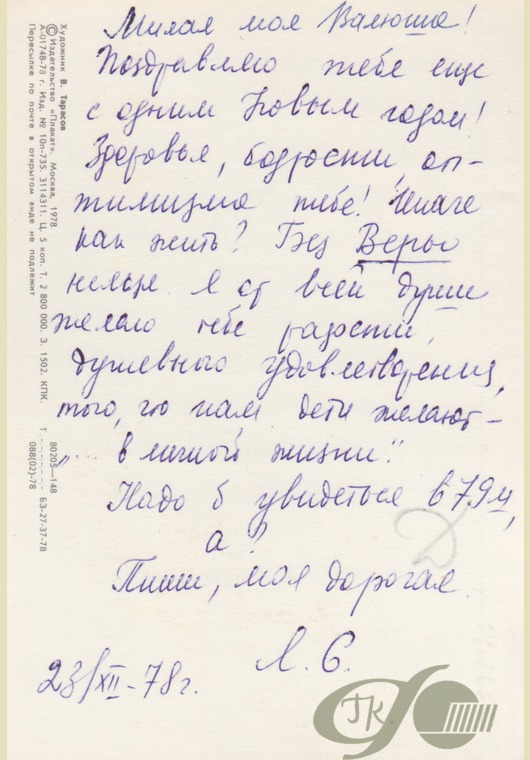 Милая моя Валюша!
Поздравляю тебе еще
с одним Новым годом!
Здоровья, бодрости, оп-
тимизма тебе! Иначе
как жить? Без Веры
нельзя Я от всей души
желаю тебе радости,
душевного удовлетворения,
того, что нам дети желают –
"... в личной жизни".
Надо б увидеться в 79м,
а?
Пиши, моя дорогая.
Л. С.
23/XII-78г.
Художник В. Тарасов
© Издательство «Плакат». Москва, 1978
А-01748-78 г. Изд. № 10п-735. 3114311. Ц. 5 коп. Т. 2 800 000. З. 1502. КПК.
Пересылке по почте в открытом виде не подлежит
Т 80205—148 / 088(02)-78 БЗ-27-37-78
ГК